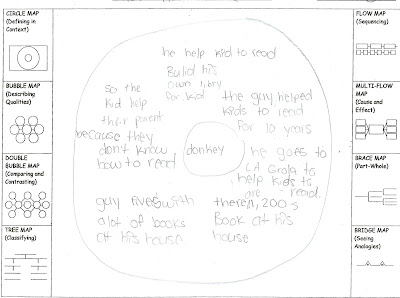 CIRCLE MAP
(Defining in
Context)
BUBBLE MAP
(Describing
Qualities)
DOUBLE
BUBBLE MAP
(Comparing and
Contrasting)
TREE MAP
(Classifying)
he help kid to read
Build his
own
for kid
so the
kid help
their parent
because they
don't know
how to read
donhey
the guy helped
kids to read
for 10 years
he goes to
LA
help kids to
read.
guy with
alot of books
at his house
200
Book at his
house
FLOW MAP
(Sequencing)
MULTI-FLOW
MAP
(Cause and
Effect)
BRACE MAP
(Part-Whole)
BRIDGE MAP
(Seeing
Analogies)